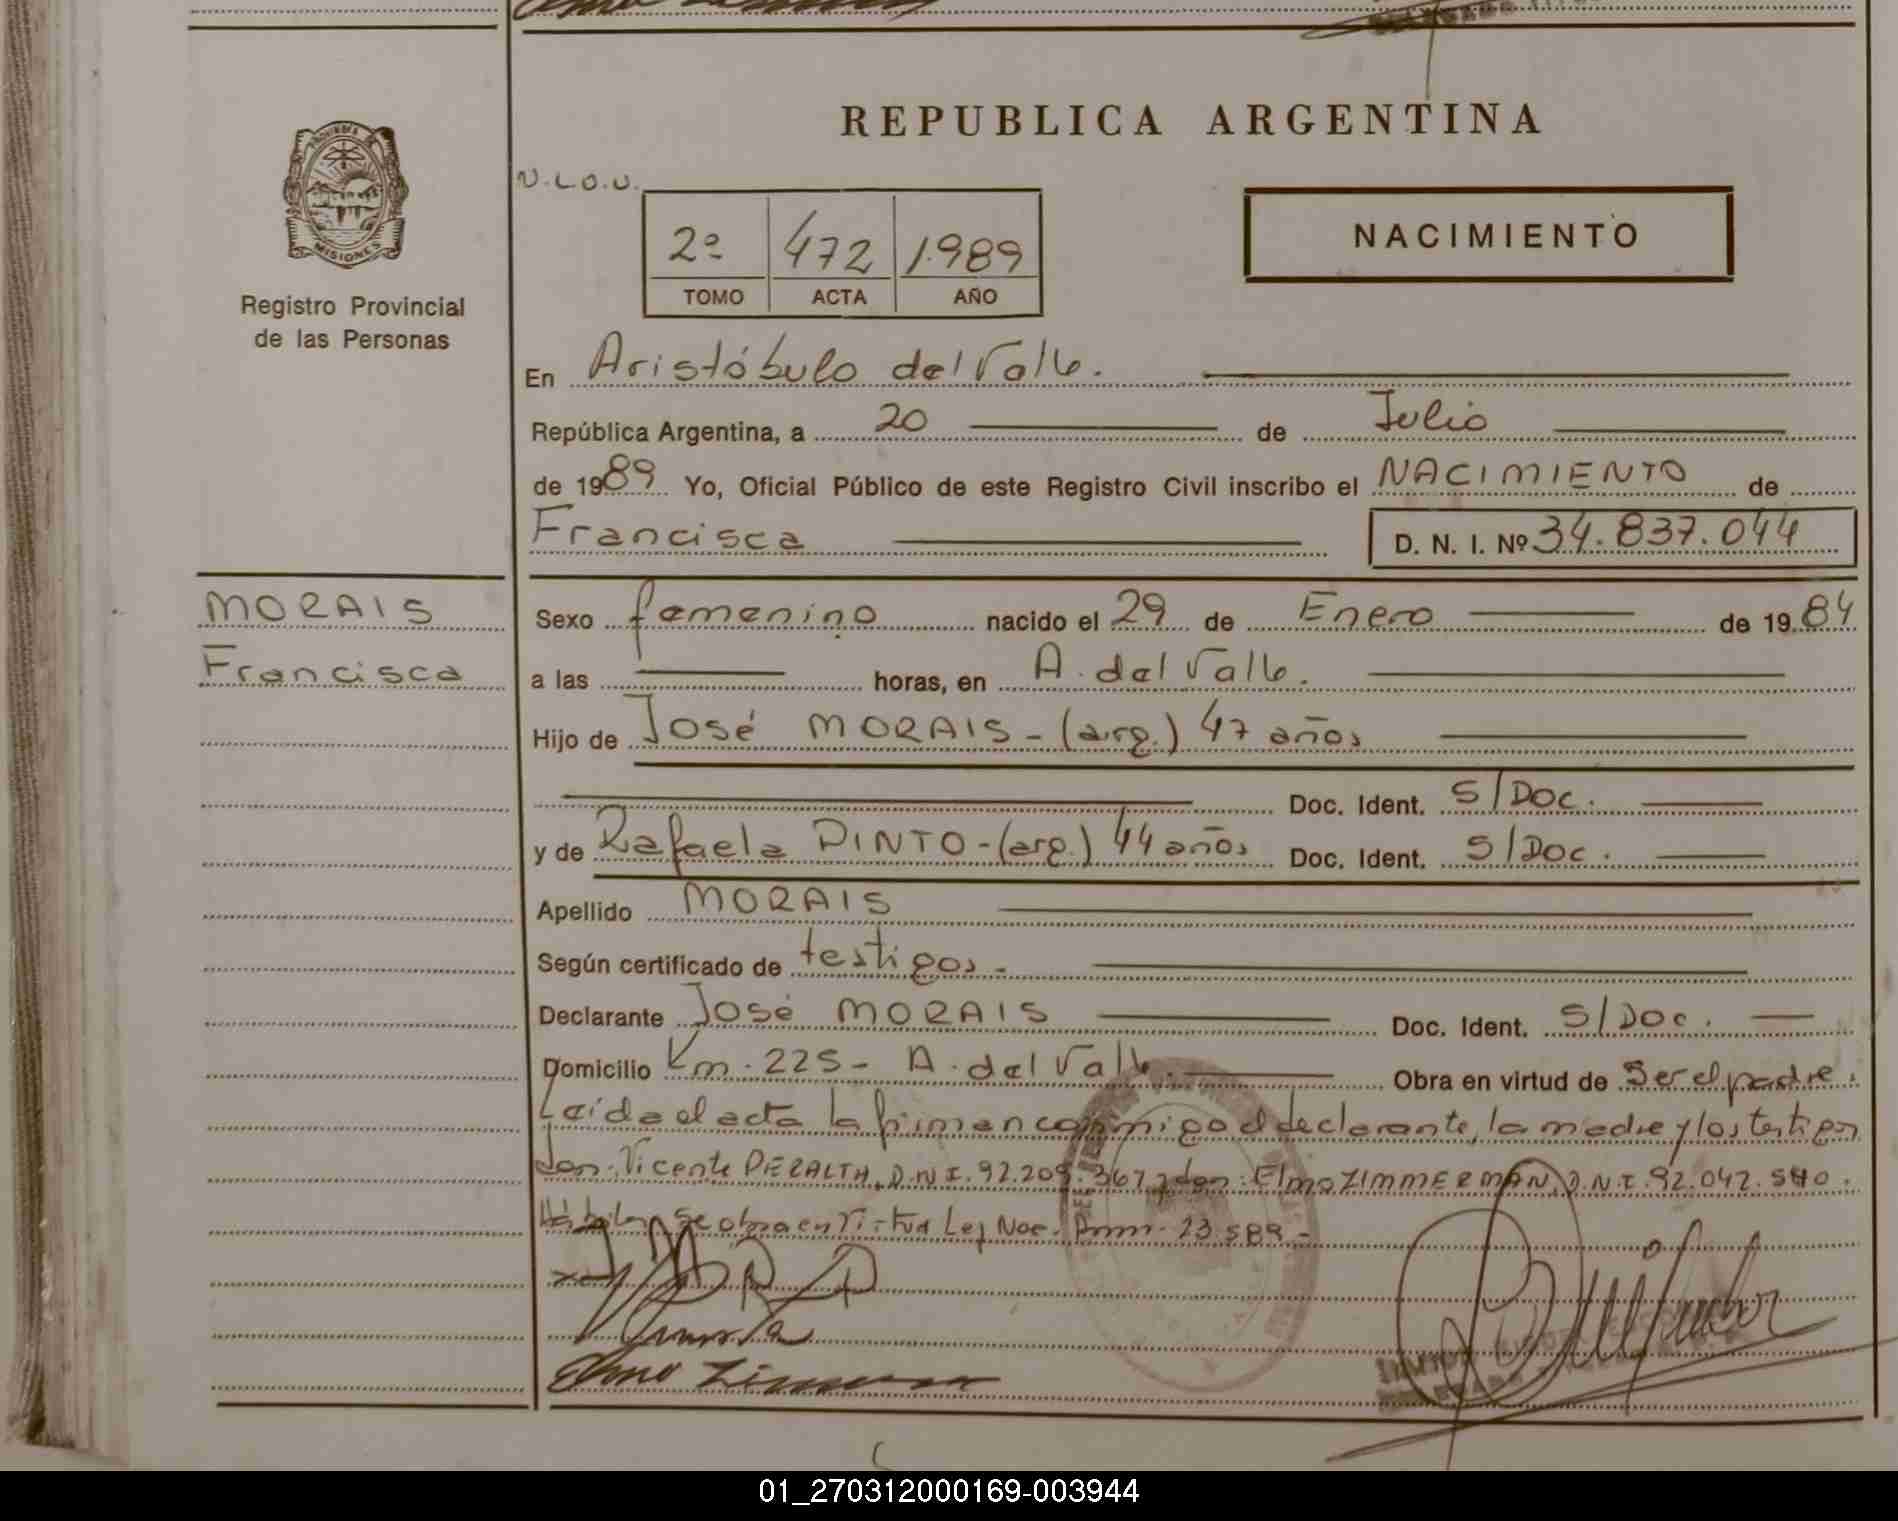 REPUBLICA ARGENTINA
PROVINCIA DE
MISIONES
Registro Provincial
de las Personas
N.L.O.U.
2º 472 1.989
TOMO ACTA AÑO
NACIMIENTO
En Aristóbulo del Valle.
República Argentina, a 20 de Julio
de 1989 Yo, Oficial Público de este Registro Civil inscribo el NACIMIENTO de
Francisca D. N. I. Nº 34.837.044
MORAIS
Francisca
Sexo femenino nacido el 29 de Enero de 1984
a las horas, en A. del Valle.
Hijo de José MORAIS - (arg.) 47 años
Doc. Ident. S/Doc.
y de Rafaela PINTO - (arg.) 44 años Doc. Ident. S/Doc.
Apellido MORAIS
Según certificado de testigos -
Declarante José MORAIS Doc. Ident. S/Doc.
Domicilio Km. 225 - A. del Valle. Obra en virtud de Ser el padre.
Leída el acta la firman conmigo el declarante, la madre y los testigos
don: Vicente PERALTA, D.N.I. 92.209.367 y don: Elmo ZIMMERMAN, D.N.I. 92.042.540.
Hábiles Se obra en Virtud Ley Nac. 23.589 -
Elmo Zimmerman
01_270312000169-003944